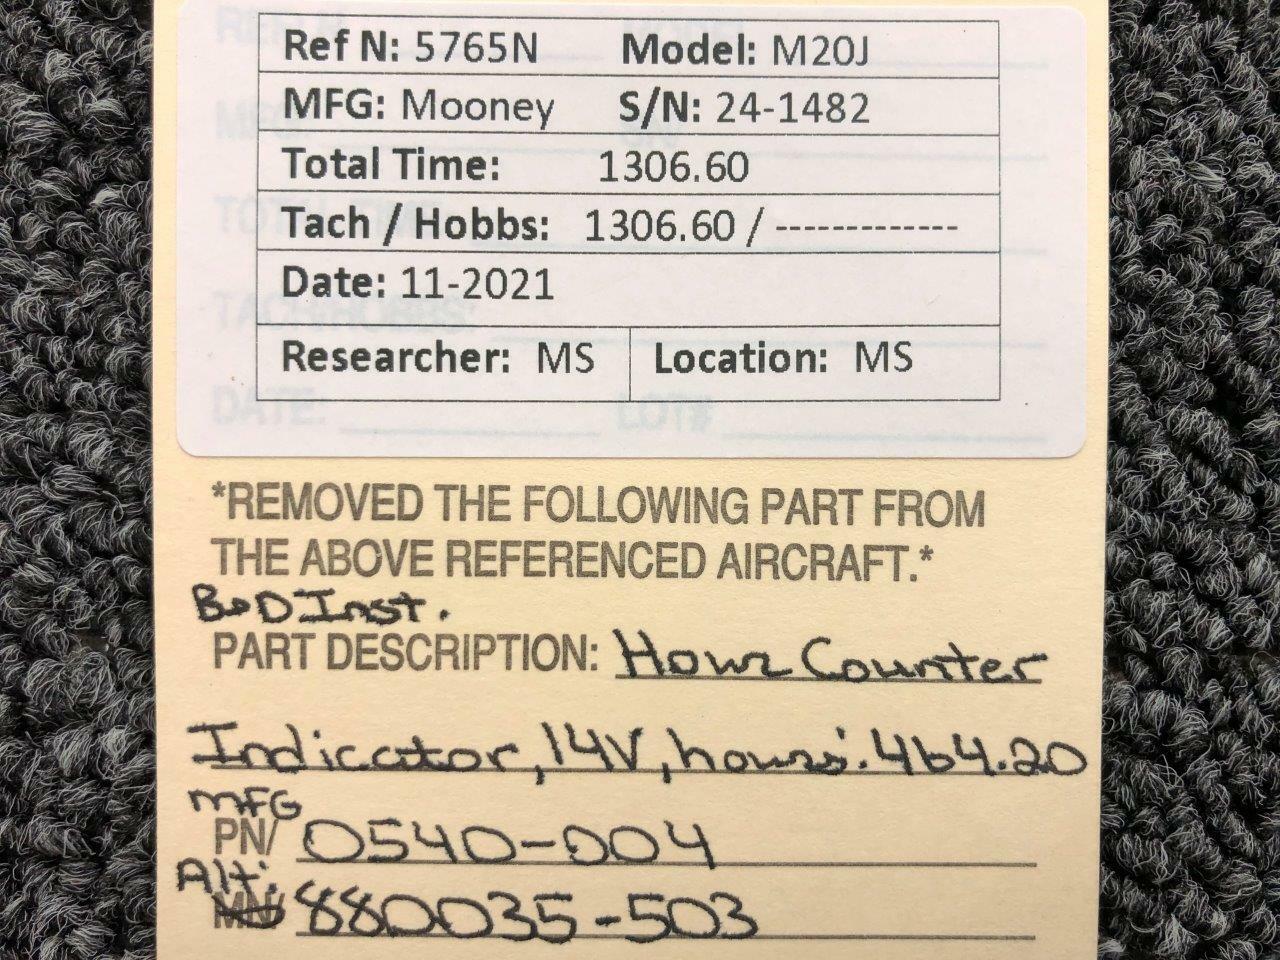 Ref N: 5765N Model: M20J
MFG: Mooney S/N: 24-1482
Total Time: 1306.60
Tach / Hobbs: 1306.60 / -------------
Date: 11-2021
Researcher: MS Location: MS
TACH/HOBBS:
DATE: LOT#
*REMOVED THE FOLLOWING PART FROM
THE ABOVE REFERENCED AIRCRAFT.*
B+D Inst.
PART DESCRIPTION: Hour Counter
Indicator, 14V, hours: 464.20
MFG
PN/ 0540-004
Alt:
MN/ 880035-503